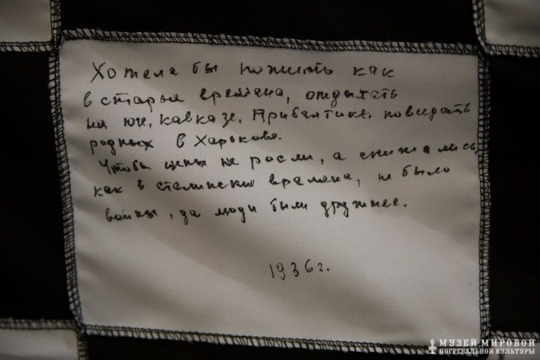 Хотела бы пожить как
в старые времена, отдыхать
на юге, Кавказе, Прибалтике, повидать
родных в Харькове.
Чтобы цены не росли, а снижались
как в сталинские времена, не было
войны, да люди были дружнее.
1936г.
МУЗЕЙ МИРОВОЙ
ПОГРЕБАЛЬНОЙ КУЛЬТУРЫ